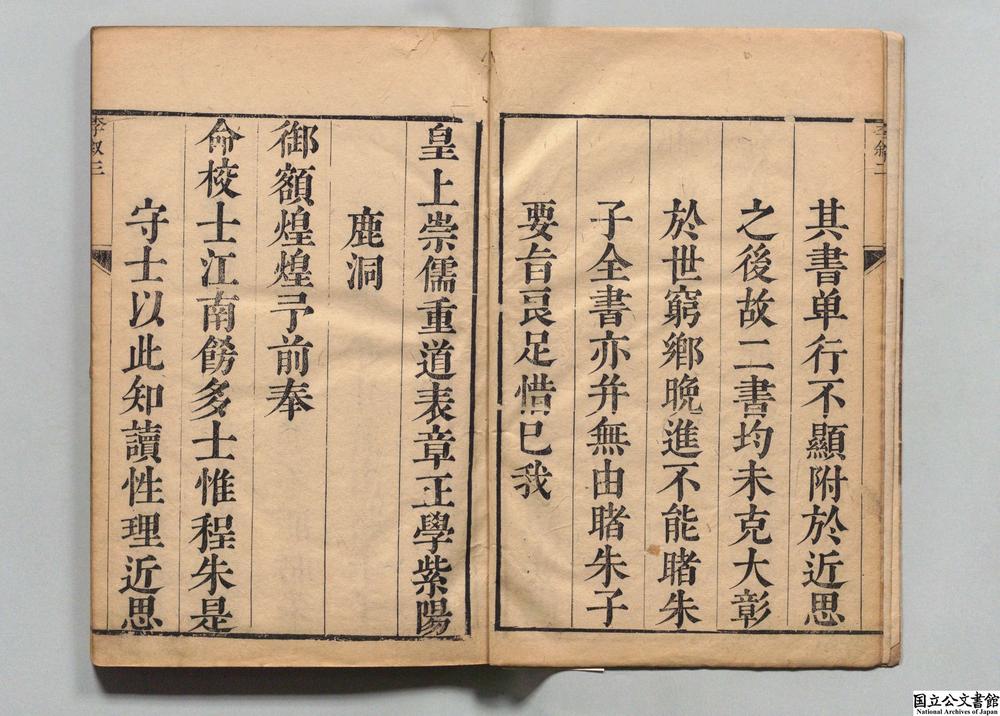 其書单行不顯附於近思
之後故二書均未克大彰
於世窮鄉晚進不能睹朱
子全書亦并無由睹朱子
要旨良足惜已我
皇上崇儒重道表章正學紫陽
鹿洞
御額煌煌予前奉
命校士江南餝多士惟程朱是
守士以此知讀性理近思
李叙三
国立公文書館
National Archives of Japan